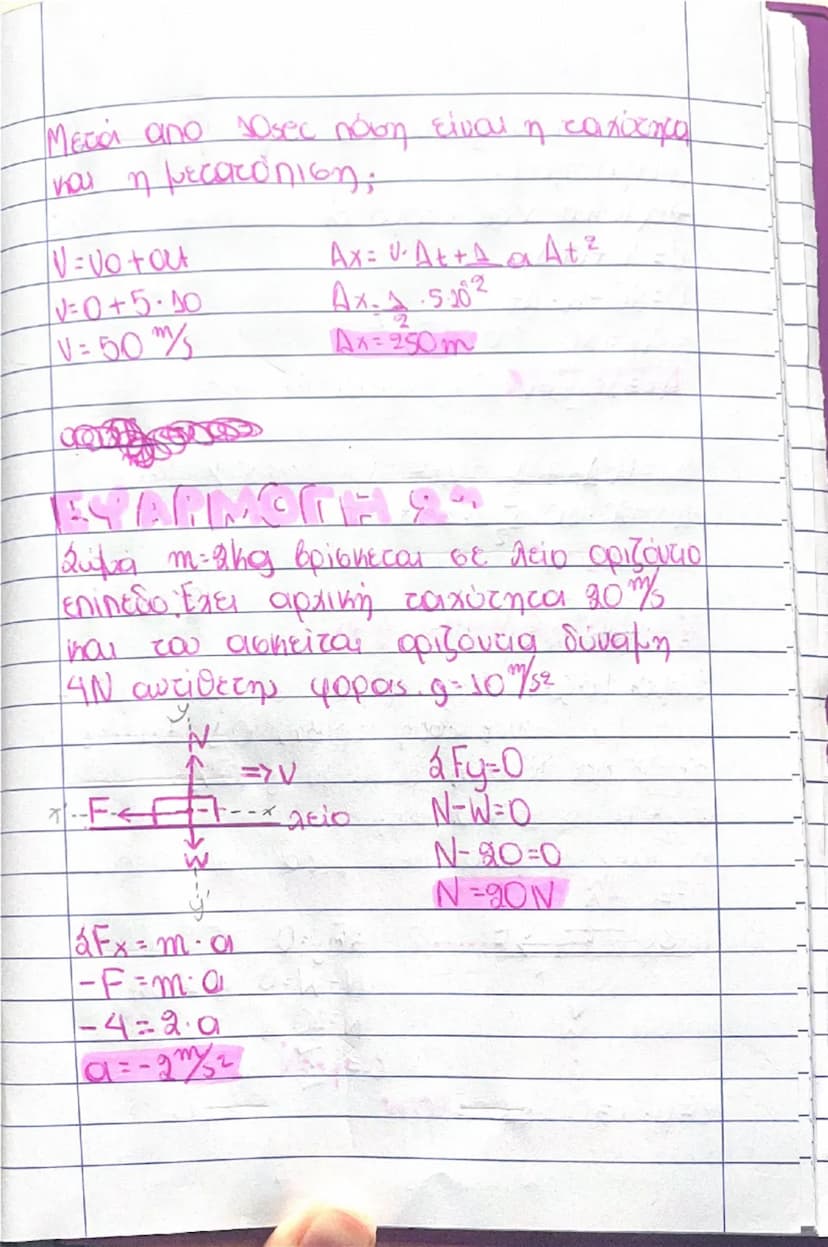 Μετά απο 10sec πόση είναι η ταχύτητα
και η μετατόπιση;
V=V0+at
Δx= V·Δt+1/2 a Δt²
V=0+5·10
Δx=1/2 ·5·10²
V=50 m/s
Δx=250m
ΕΦΑΡΜΟΓΗ 2η
Σώμα m=2kg βρίσκεται σε λείο οριζόντιο
επίπεδο. Έχει αρχική ταχύτητα 20 m/s
και του ασκείται οριζόντια δύναμη
4N αντίθετης φοράς. g=10 m/s²
y
N
=>V
ΣFy=0
x' F x λείο
N-W=0
W
N-20=0
y'
N=20N
ΣFx=m·a
-F=m·a
-4=2·a
a=-2 m/s²